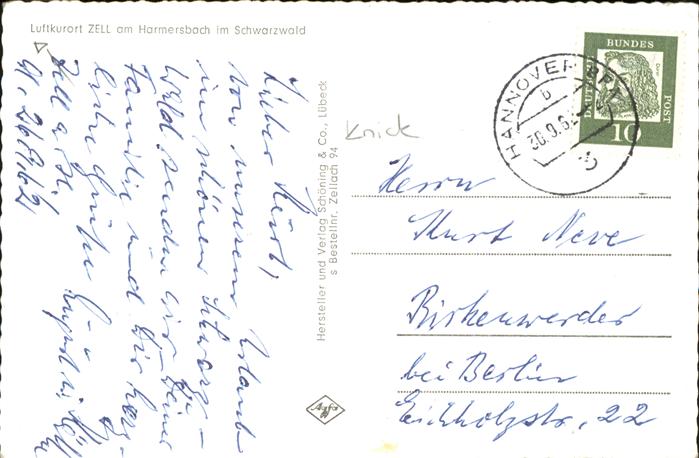 Luftkurort ZELL am Harmersbach im Schwarzwald
Lieber Kurt,
von unserem Urlaub
im schönen Schwarz-
wald senden wir Deiner
Familie und Dir herz-
liche Grüße
Zell a. H.
Hersteller und Verlag Schöning & Co., Lübeck
s Bestellnr. Zellach 94
Knick
Agfa
BUNDES
POST
Dürer
10
HANNOVER BPA
b
Herrn
Kurt Neve
Birkenwerder
bei Berlin
Eichholzstr. 22